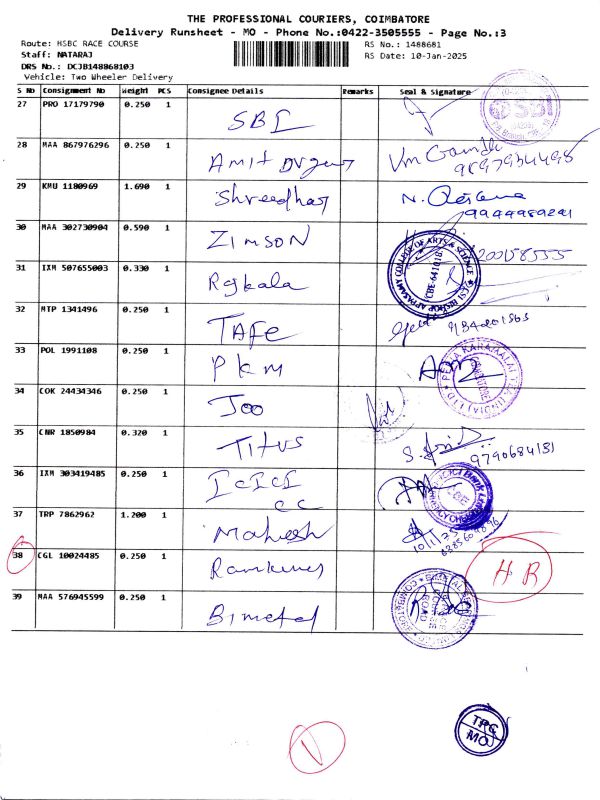 THE PROFESSIONAL COURIERS, COIMBATORE
Delivery Runsheet - MO - Phone No.:0422-3505555 - Page No.:3
Route: HSBC RACE COURSE
RS No.: 1488681
Staff: NATARAJ
RS Date: 10-Jan-2025
DRS No.: DCJB148868103
Vehicle: Two Wheeler Delivery
S No Consignment No Weight PCS Consignee Details Remarks Seal & Signature
27 PRO 17179790 0.250 1 SBI
28 MAA 867976296 0.250 1 Amit
29 KMU 1180969 1.690 1 Shreedhar
9944989291
30 MAA 302730904 0.590 1 ZIMSON
31 IXM 507655003 0.330 1 Rejkala
CBE-641018
32 MTP 1341496 0.250 1 TAFE
33 POL 1991108 0.250 1 PKM
34 COK 24434346 0.250 1 Joo
35 CNR 1850984 0.320 1 Titus
9790684131
36 IXM 303419485 0.250 1 ICICI
CC
37 TRP 7862962 1.200 1 Mahesh
38 CGL 10024485 0.250 1 HR
39 MAA 576945599 0.250 1 Bimetal
TPC
MO